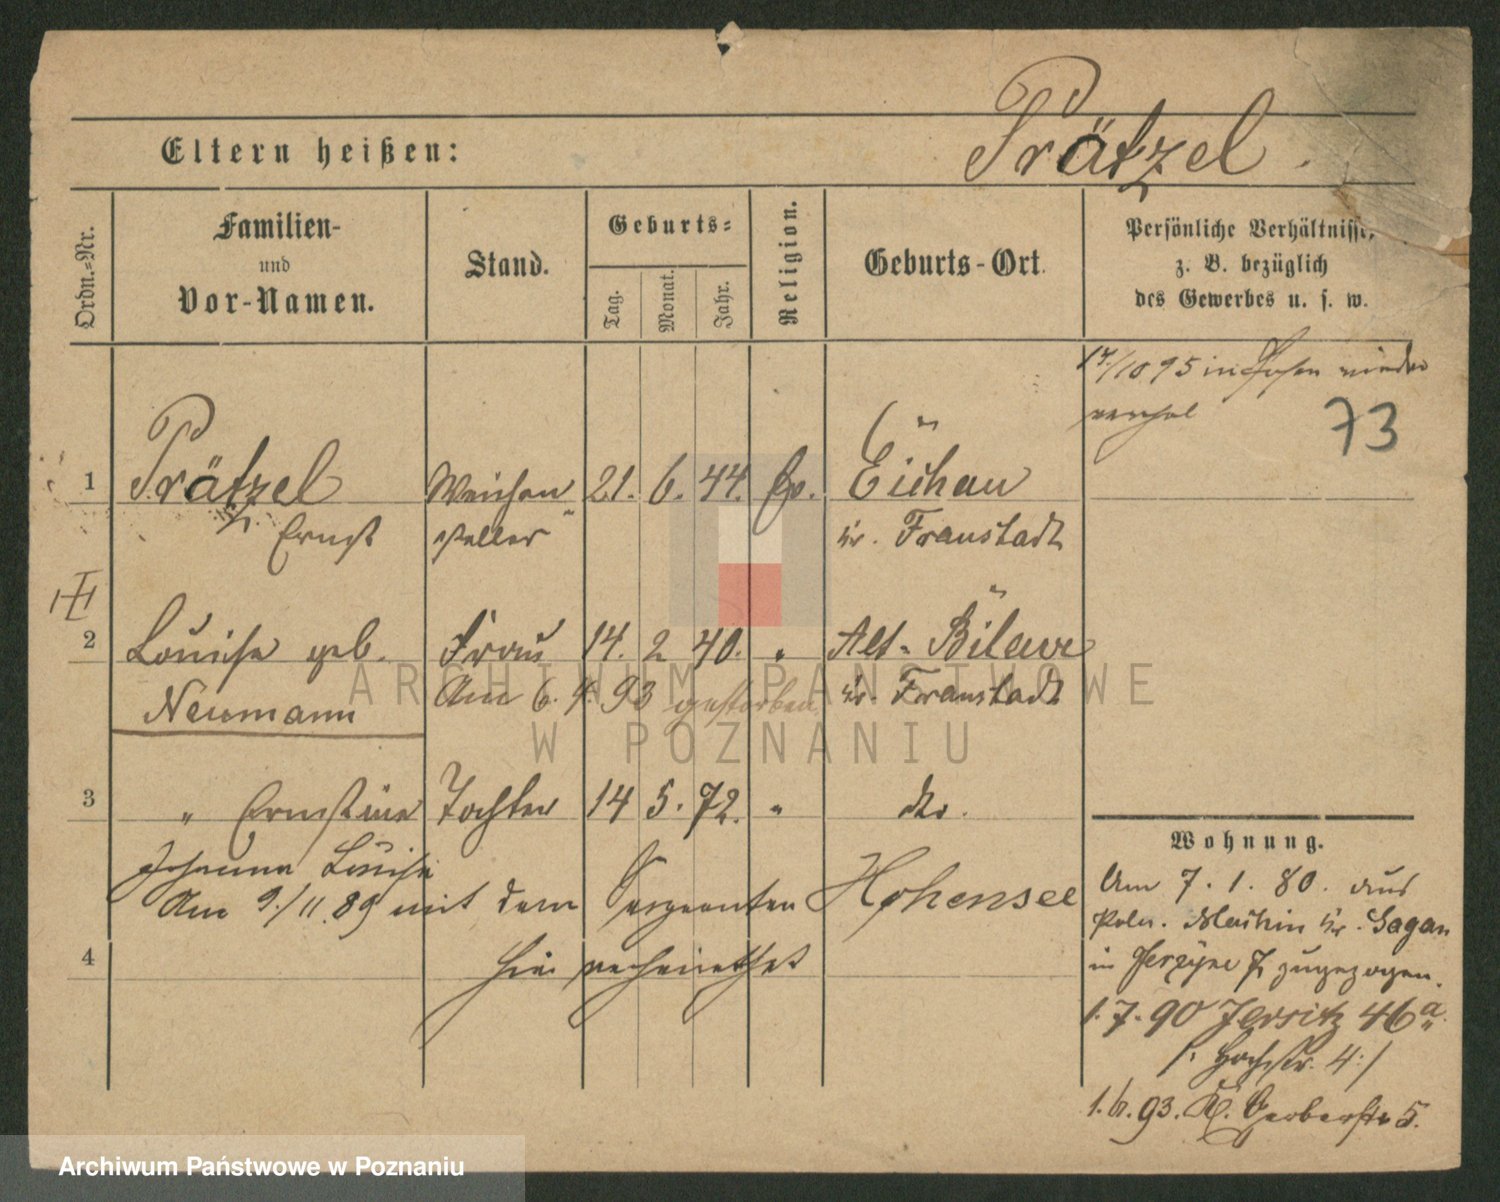 Eltern heißen:
Prätzel.
Ordn.-Nr.
Familien-
und
Vor-Namen.
Stand.
Geburts-
Tag.
Monat.
Jahr.
Religion.
Geburts-Ort.
Persönliche Verhältnisse,
z. B. bezüglich
des Gewerbes u. s. w.
/10 95 in Posen wieder
73
1 Prätzel Weichen 21. 6. 44. Ev. Eichau
Ernst steller Kr. Fraustadt
2 Louise geb. Frau 14. 2 40. " Alt-Bilawe
Neumann Am 6. 4. 93 gestorben Kr. Fraustadt
3 " Ernstine Tochter 14 5. 72. " dto.
Johanna Louise
Am 9./11.89 mit dem Sergeanten Hohensee
4 hier verheirathet
Wohnung.
Am 7. 1. 80. aus
Poln. Kr. Sagan
in zugezogen.
1. 7. 90 Jersitz 46 a.
/: Hochstr. 4 :/
93. Gerberstr 5.
ARCHIWUM PAŃSTWOWE
W POZNANIU
Archiwum Państwowe w Poznaniu